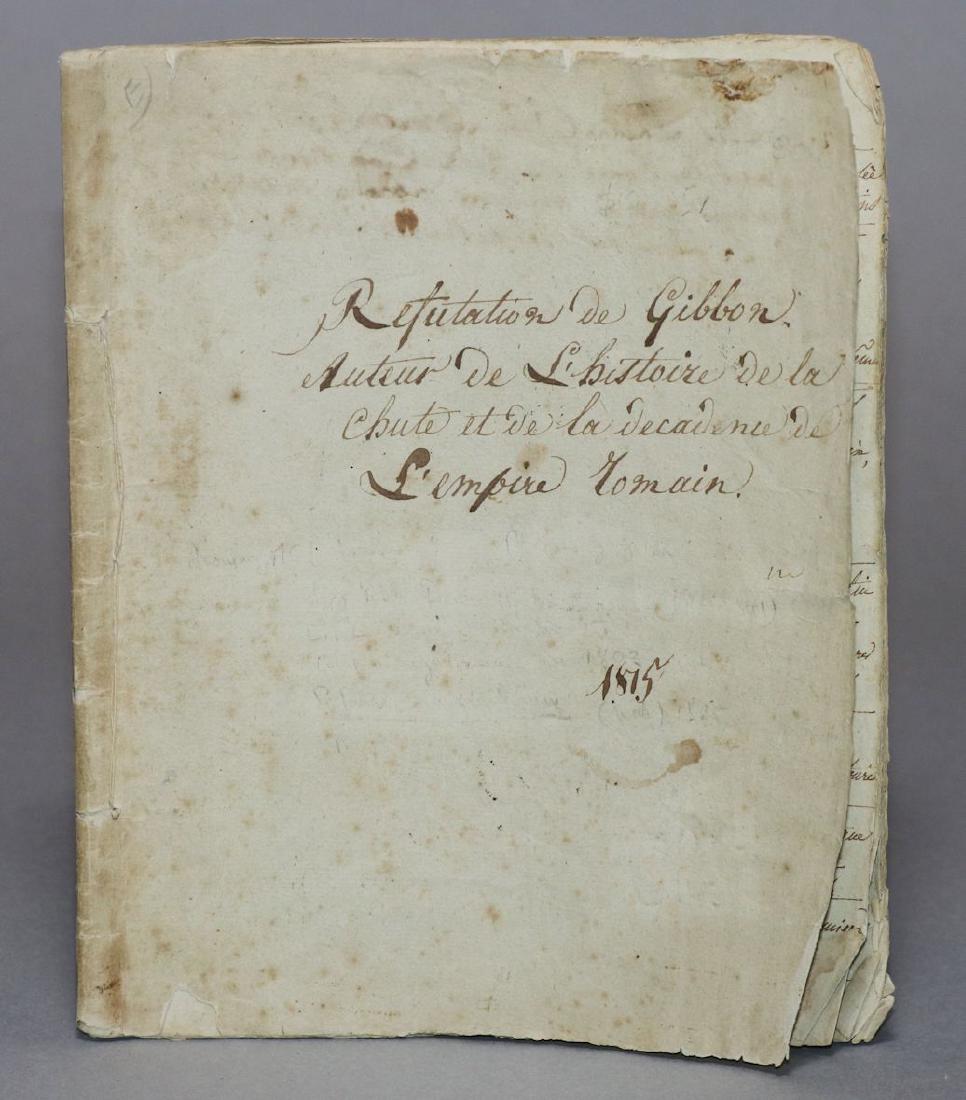 Refutation de Gibbon.
Auteur de L'histoire de la
chute et de la decadence de
L'empire romain.
1815